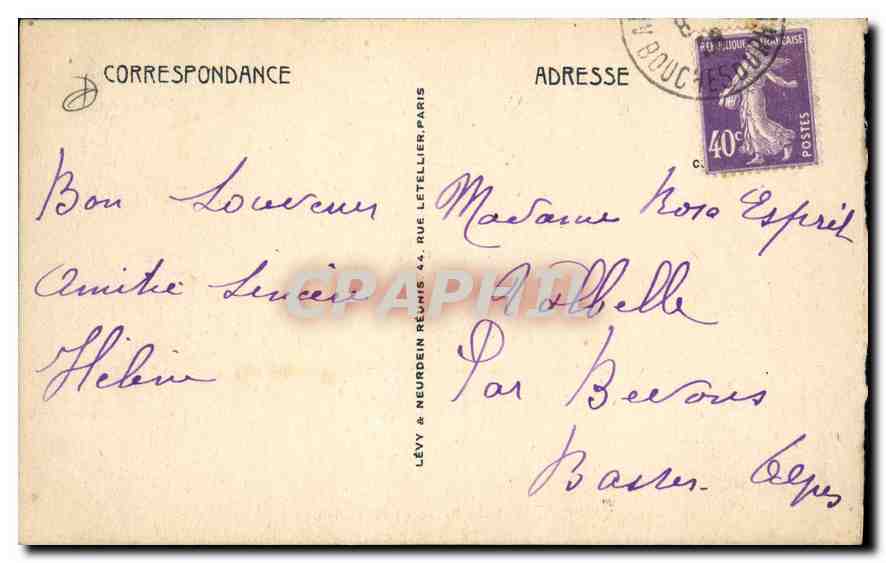 CORRESPONDANCE
Bon Souvenir
Amitié Sincère
Hélène
LÉVY & NEURDEIN RÉUNIS, 44, RUE LETELLIER, PARIS
ADRESSE
BOUCHES DU
REPUBLIQUE FRANÇAISE
40c
POSTES
Madame Rosa Esprit
Valbelle
Par Bevons
Basses-Alpes
CPAPHIL